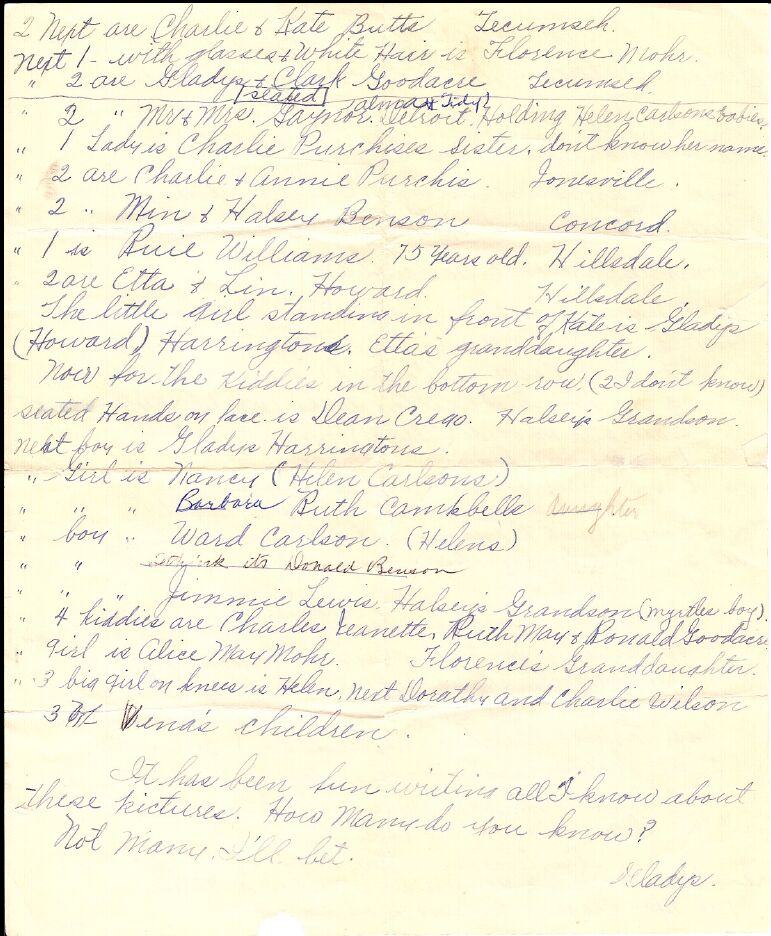 2 Next are Charlie & Kate Butts Tecumseh.
Next 1 - with glasses & White Hair is Florence Mohr.
" 2 are Gladys & Clark Goodacre Tecumseh.
seated Talmadt Tidy?
" 2 " Mr & Mrs. Gaynor. Detroit. Holding Helen Carlsons babies.
" 1 Lady is Charlie Purchises Sister. don't know her name.
" 2 are Charlie & Annie Purchis. Jonesville.
" 2 " Min & Halsey Benson Concord.
" 1 is Williams. 75 Years old. Hillsdale.
" 2 are Etta & Lin. Howard. Hillsdale.
The little girl standing in front of Kate is Gladys
(Howard) Harringtons. Etta's granddaughter.
Now for the Kiddies in the bottom row. (2 I don't know)
seated Hands on face is Dean Crego. Halsey's Grandson.
next boy is Gladys Harringtons.
" Girl is Nancy (Helen Carlsons)
" " " Barbara Ruth Campbells daughter
" boy " Ward Carlson. (Helens)
" " I think its Donald Benson
" " " Jimmie Lewis. Halsey's Grandson (Myrtles boy).
" 4 Kiddies are Charles, Jeanette, Ruth May & Ronald Goodacre
" girl is Alice May Mohr. Florence's Granddaughter.
" 3 big girl on knees is Helen, next Dorathy and Charlie Wilson
3 Vena's children.
It has been fun writing all I know about
these pictures. How many do you know?
Not many. I'll bet.
Gladys.